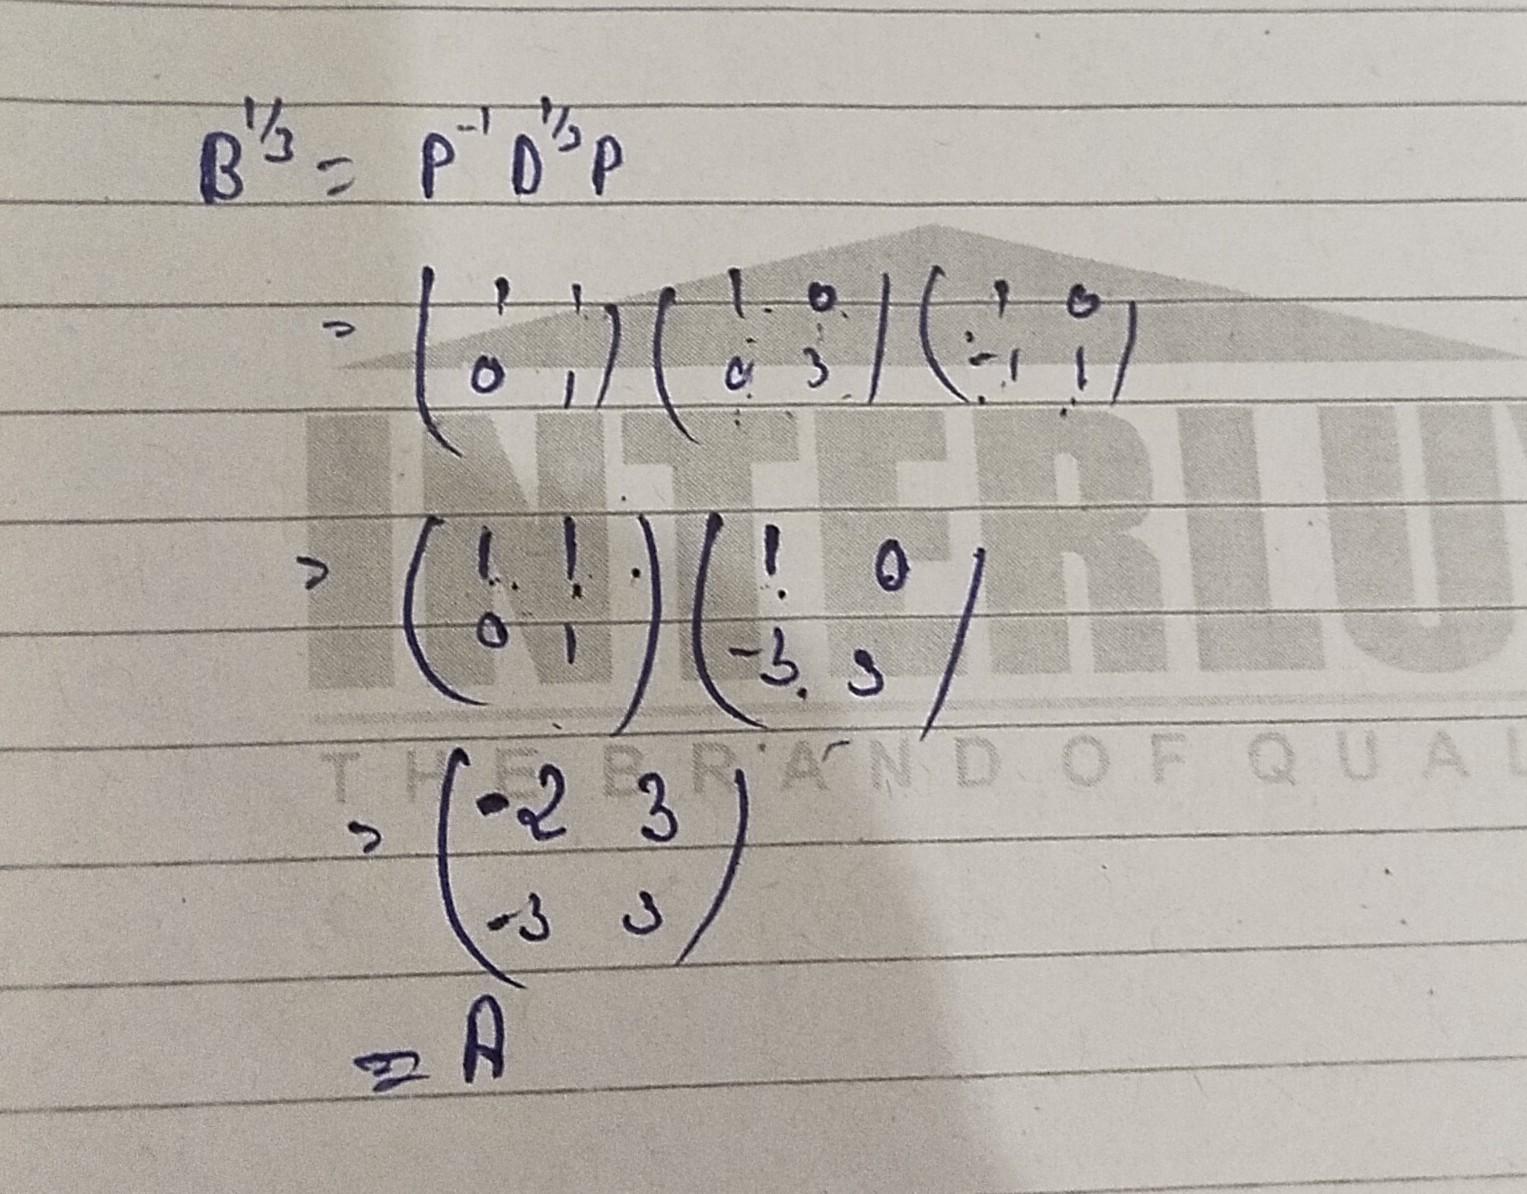 B^{1/3} = P^{-1} D^{1/3} P
= \begin{pmatrix} 1 & 1 \\ 0 & 1 \end{pmatrix} \begin{pmatrix} 1 & 0 \\ 0 & 3 \end{pmatrix} \begin{pmatrix} 1 & 0 \\ -1 & 1 \end{pmatrix}
= \begin{pmatrix} 1 & 1 \\ 0 & 1 \end{pmatrix} \begin{pmatrix} 1 & 0 \\ -3 & 3 \end{pmatrix}
= \begin{pmatrix} -2 & 3 \\ -3 & 3 \end{pmatrix}
= A
THE BRAND OF QUAL